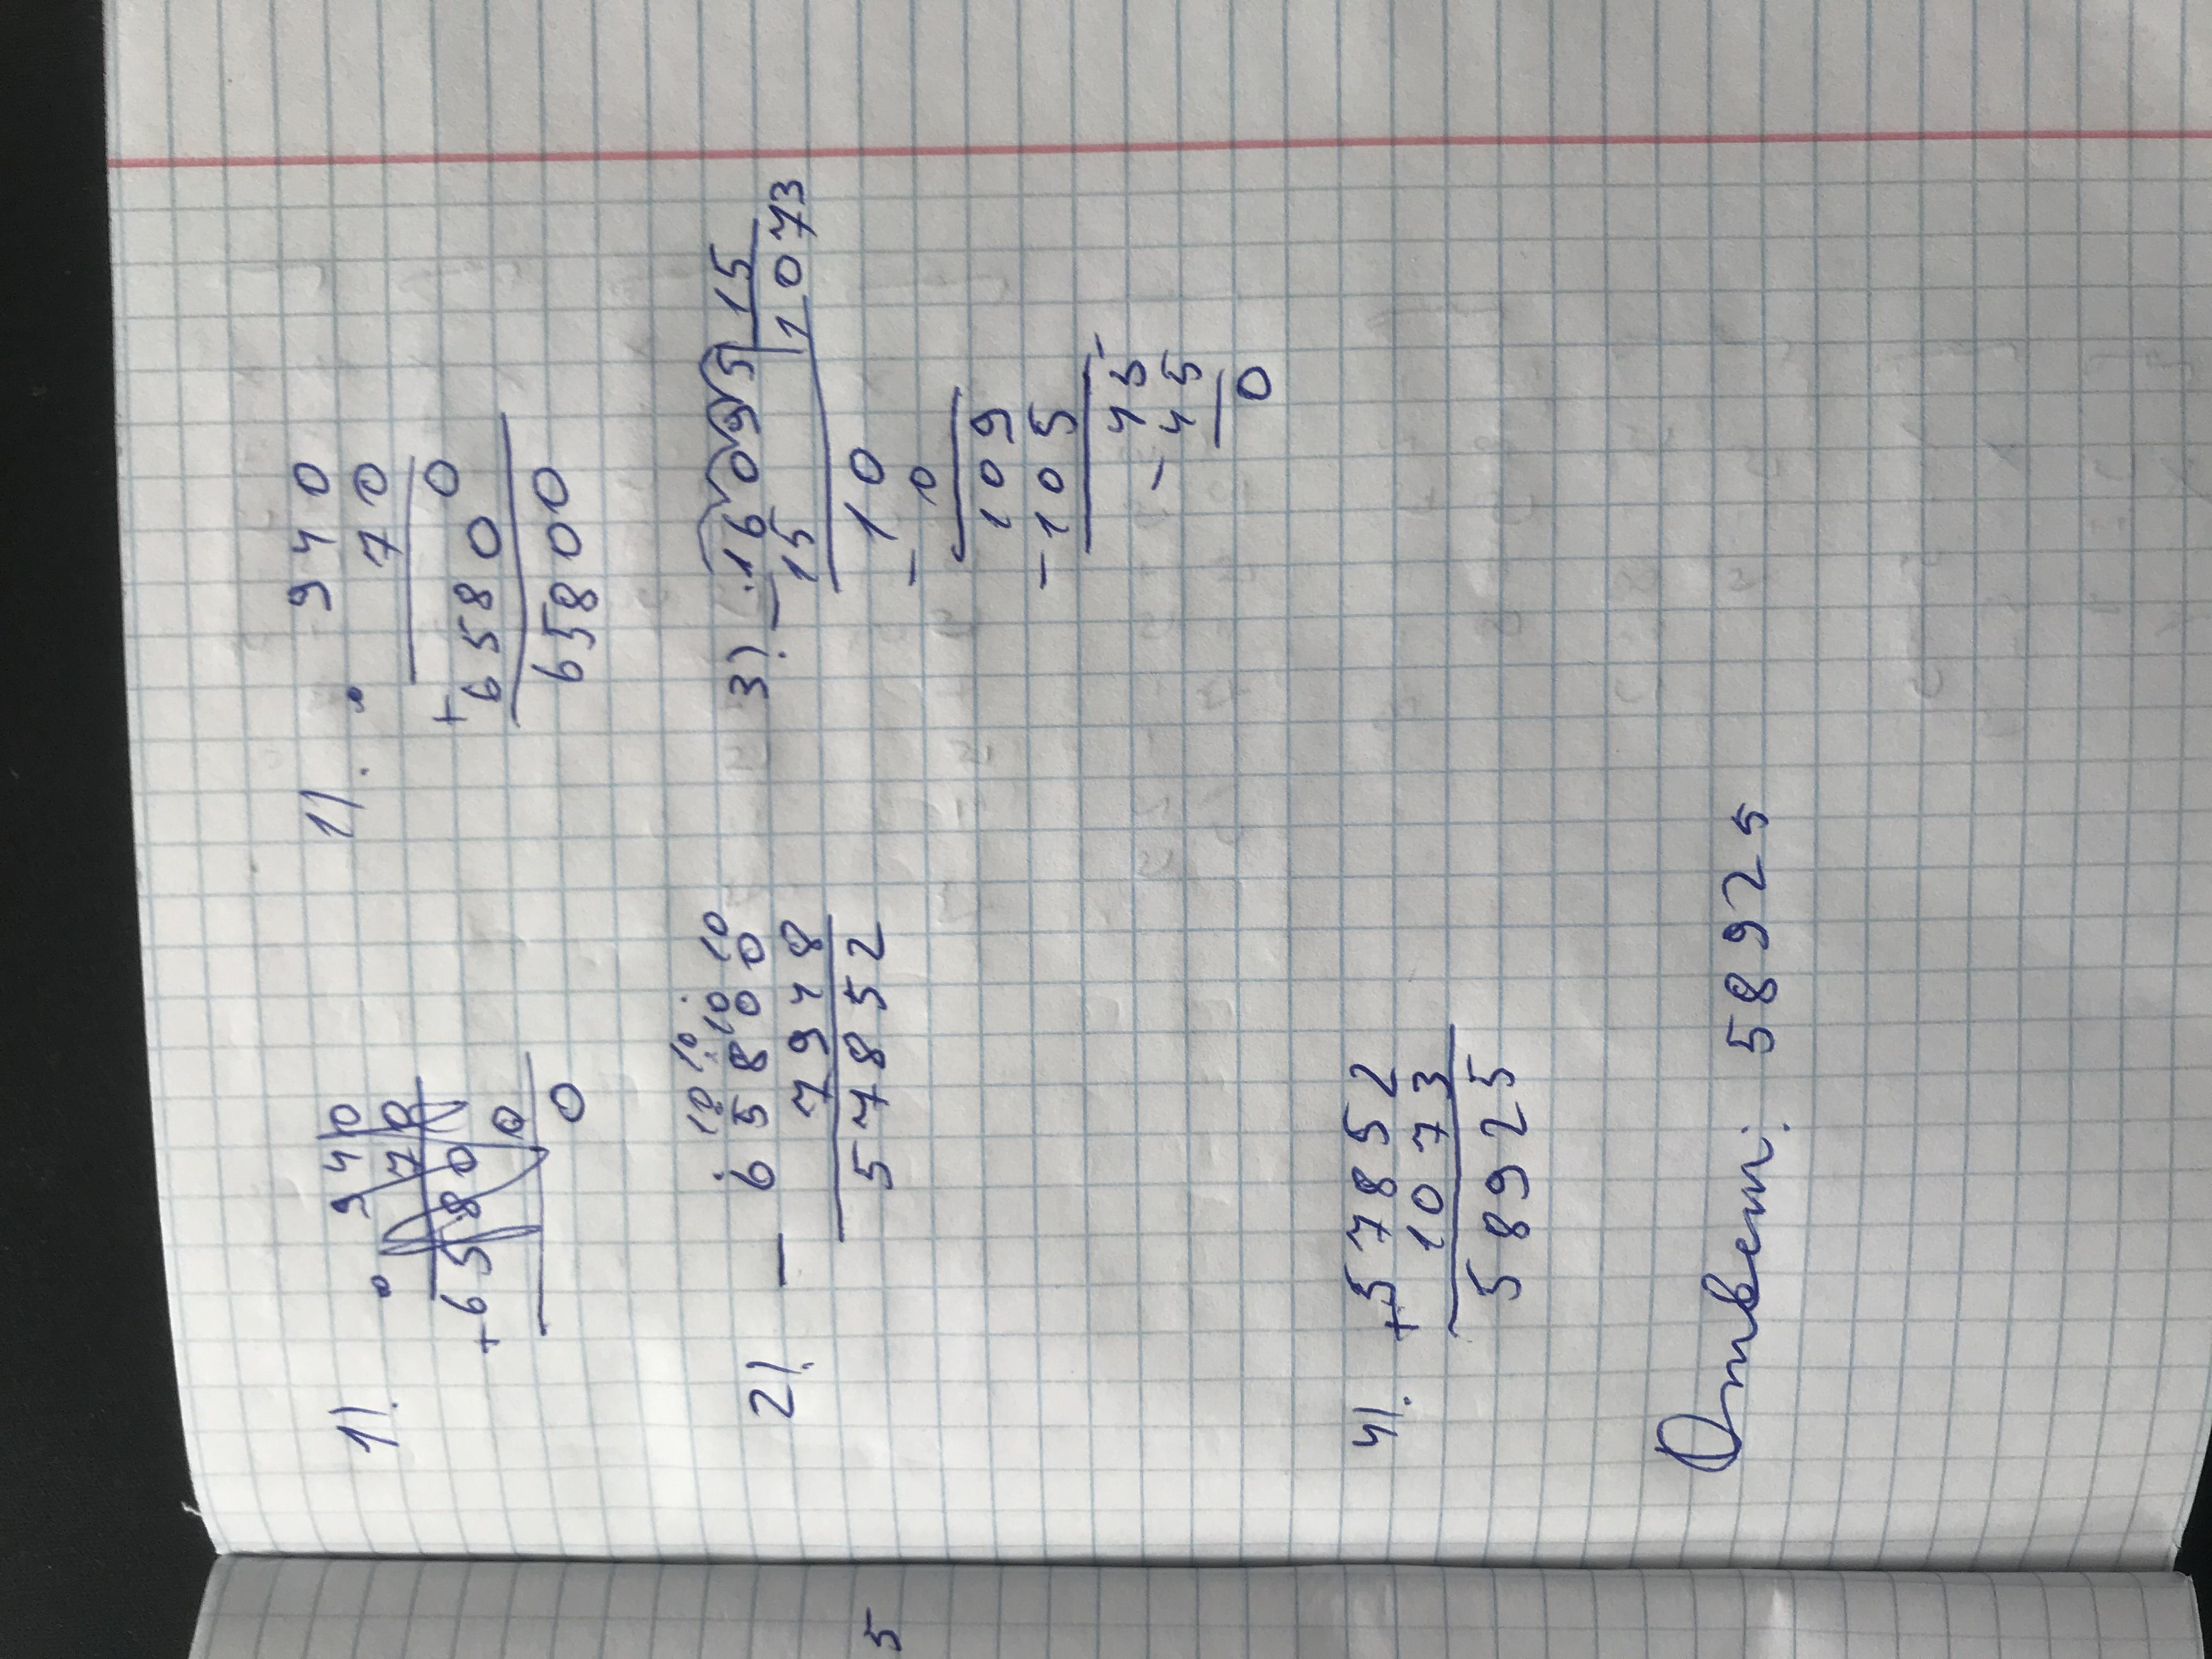 1). 940
· 70
+ 6580
0
0
1). 940
· 70
+ 0
6580
65800
2). 10 10 10 10
− 65800
7948
57852
3). − 16095 15
15 1073
10
− 0
109
− 105
45
− 45
0
4). + 57852
1073
58925
Ответ: 58925
5